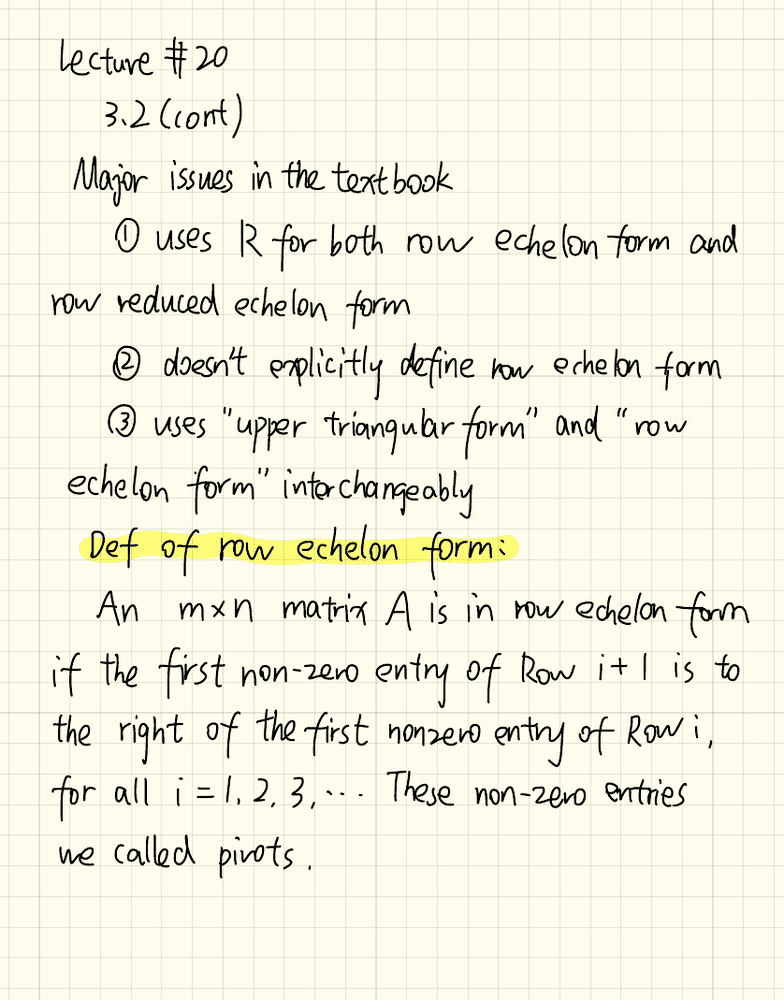 Lecture #20
3.2 (cont)
Major issues in the textbook
① uses R for both row echelon form and
row reduced echelon form
② doesn't explicitly define row echelon form
③ uses "upper triangular form" and "row
echelon form" interchangeably
Def of row echelon form:
An m×n matrix A is in row echelon form
if the first non-zero entry of Row i+1 is to
the right of the first nonzero entry of Row i,
for all i = 1, 2, 3, ... These non-zero entries
we called pivots.